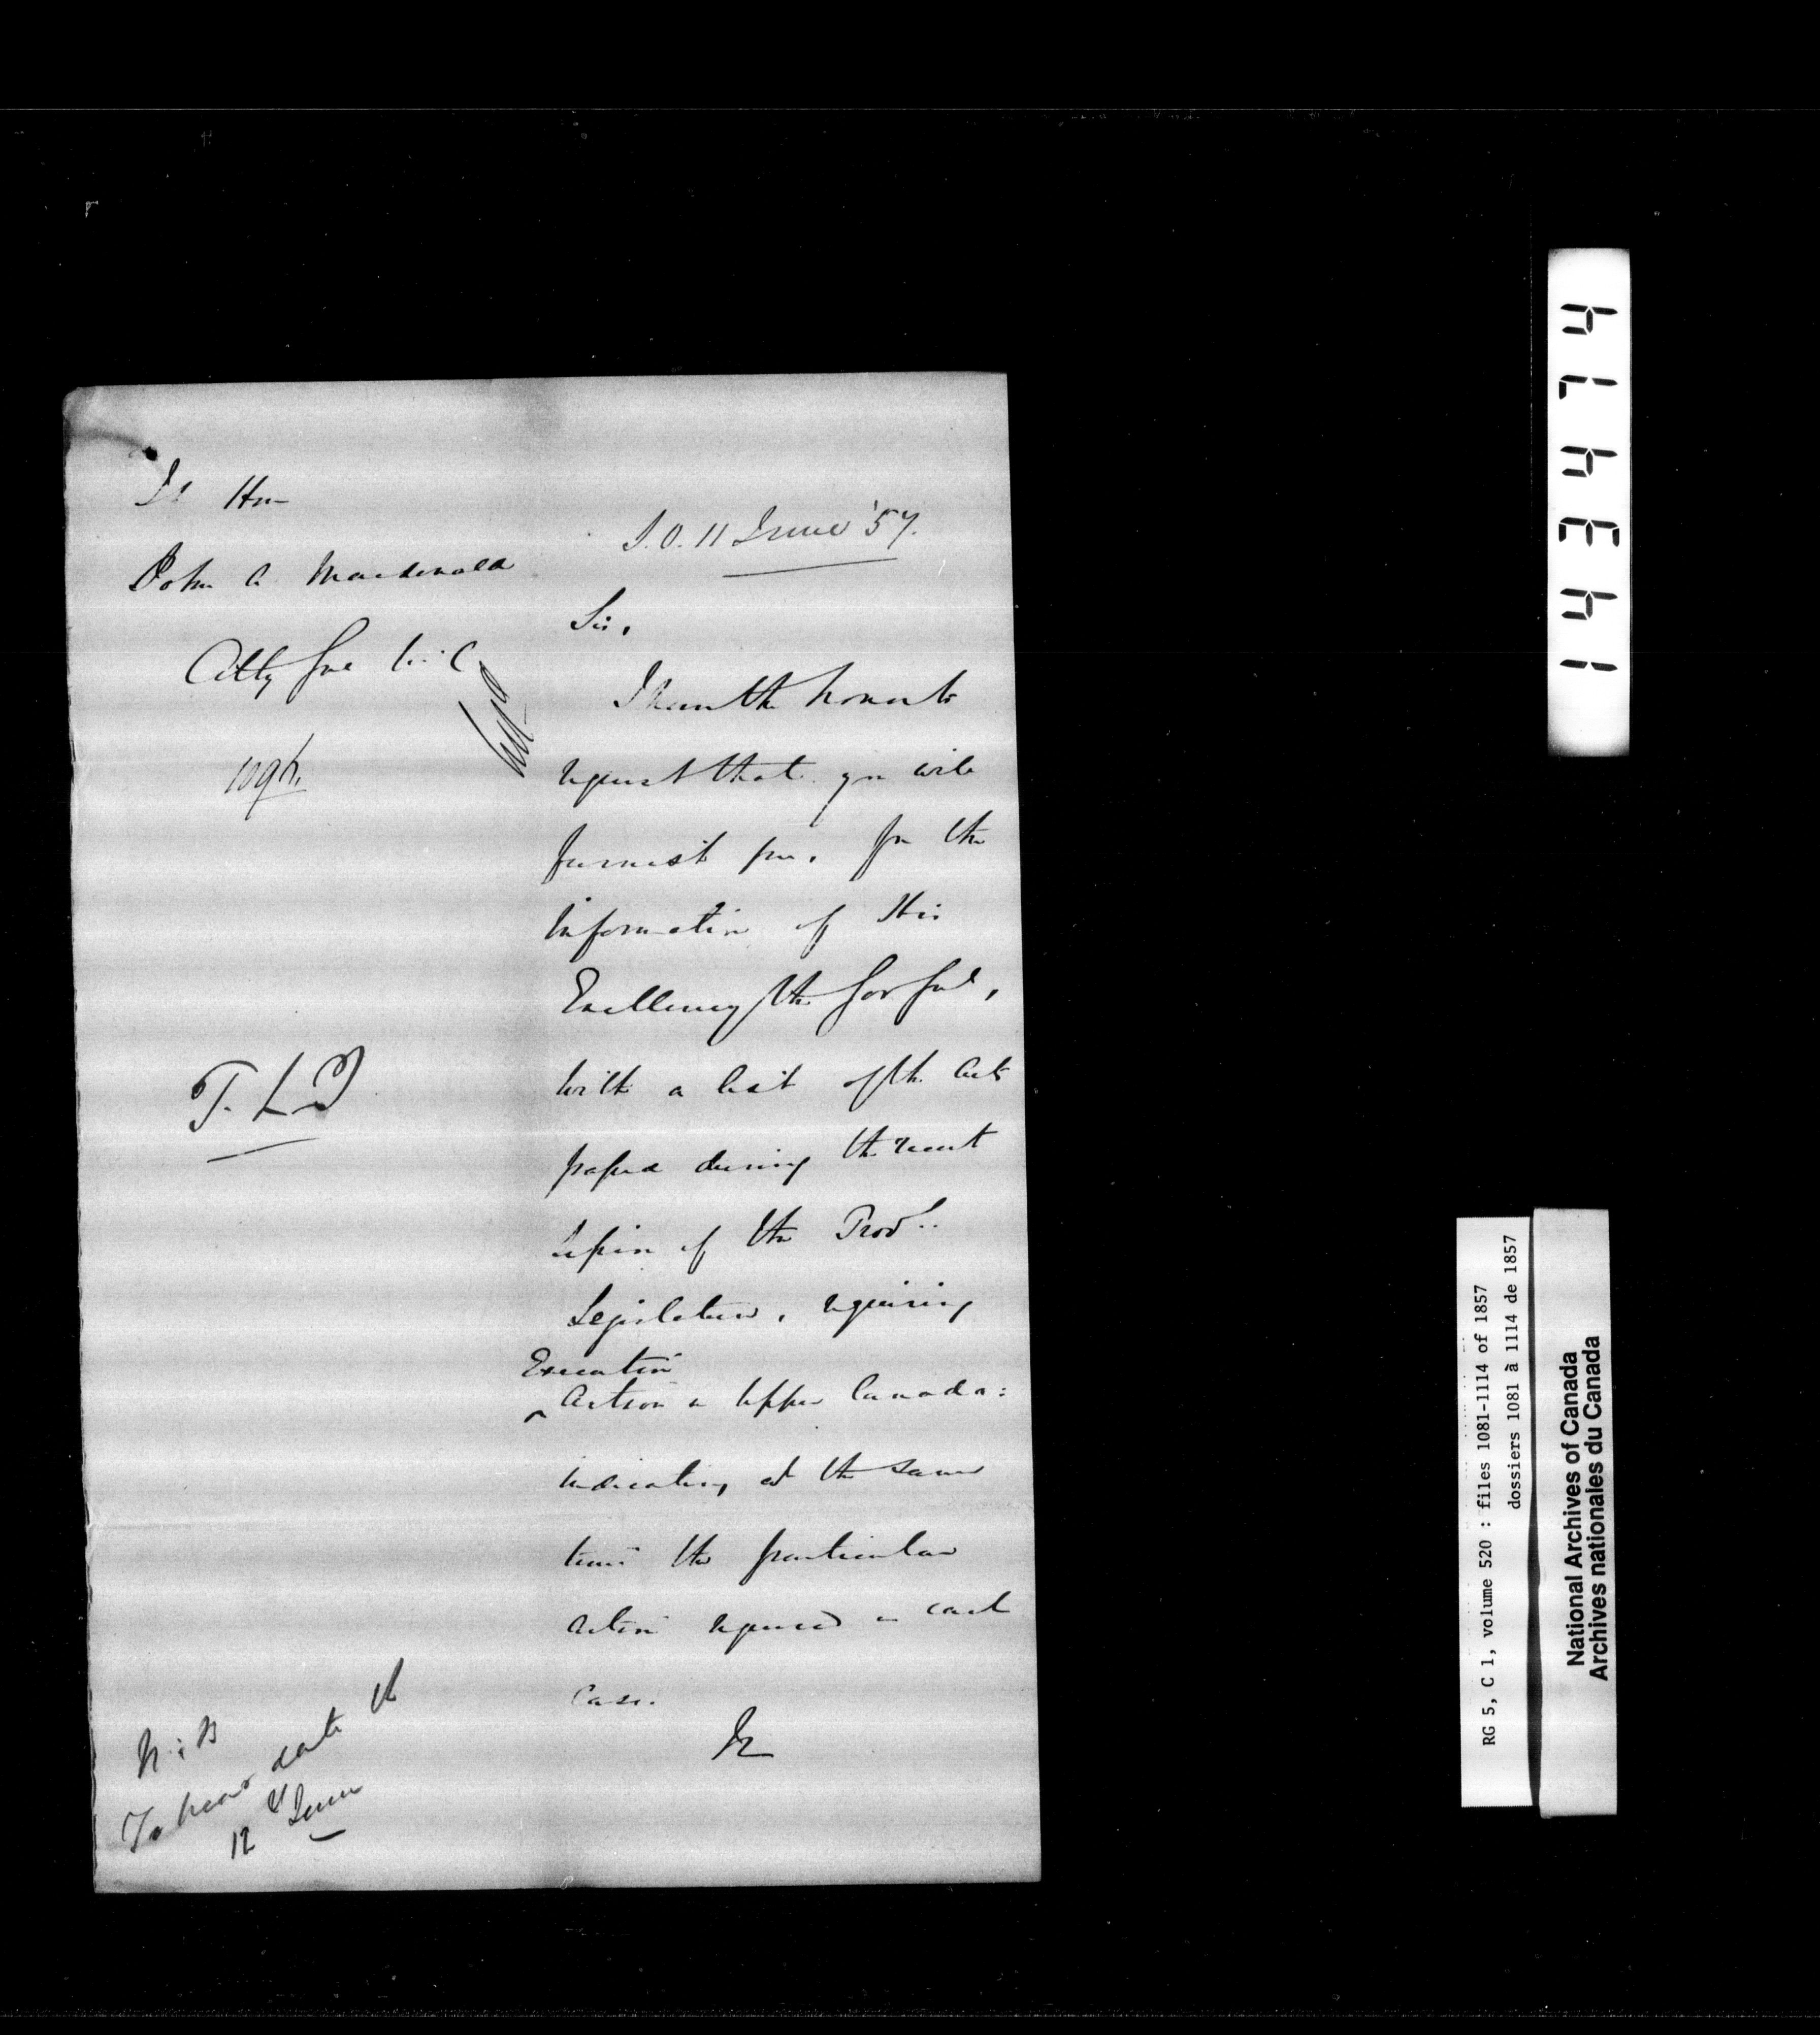 The Hon
John A Macdonald
Atty Gnl U.C
1096.
T. L. T
N:B
To bear date the
12th June
S.O. 11 June '57.
Sir,
I have the honor to
request that you will
furnish me, for the
information of His
Excellency the Gov Gnl,
with a list of the Acts
passed during the recent
Session of the Provl.
Legislature, requiring
Executive
^ Action in Upper Canada:
indicating at the same
time the particular
action required in each
case.
14344174
RG 5, C 1, volume 520 : files 1081-1114 of 1857
dossiers 1081 à 1114 de 1857
National Archives of Canada
Archives nationales du Canada